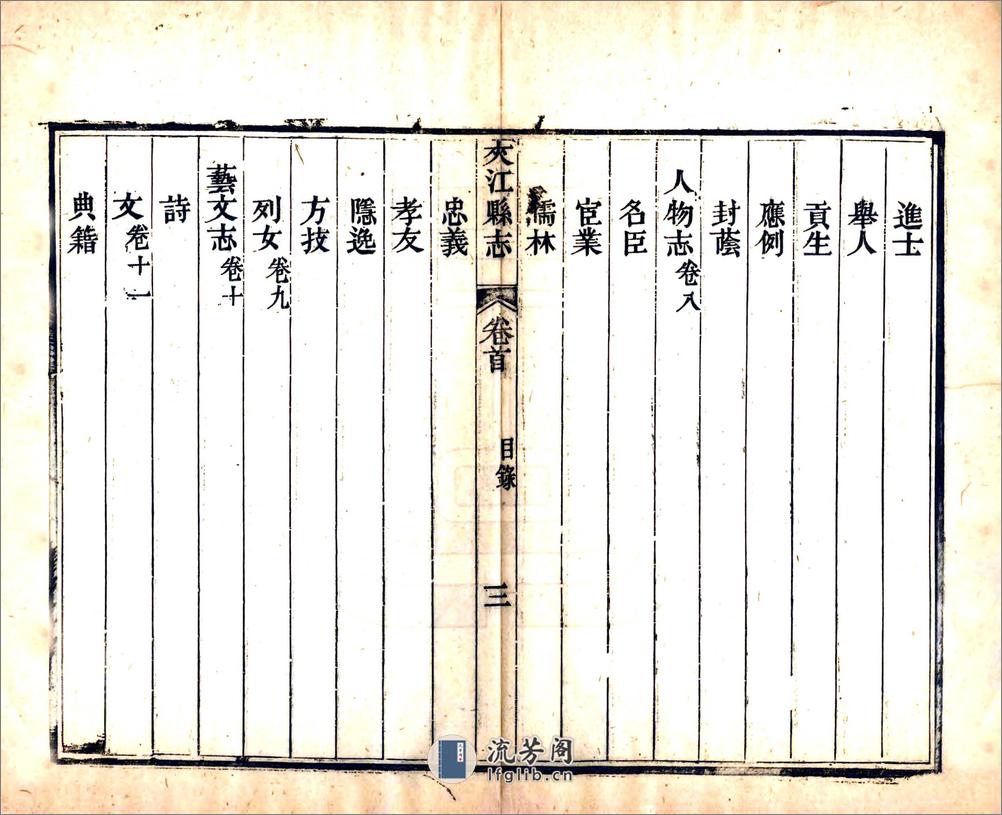 進士
舉人
貢生
應例
封蔭
人物志卷八
名臣
宦業
儒林
夾江縣志 卷首 目錄 三
忠義
孝友
隱逸
方技
列女卷九
藝文志卷十
詩
文卷十一
典籍
流芳阁
lfglib.cn